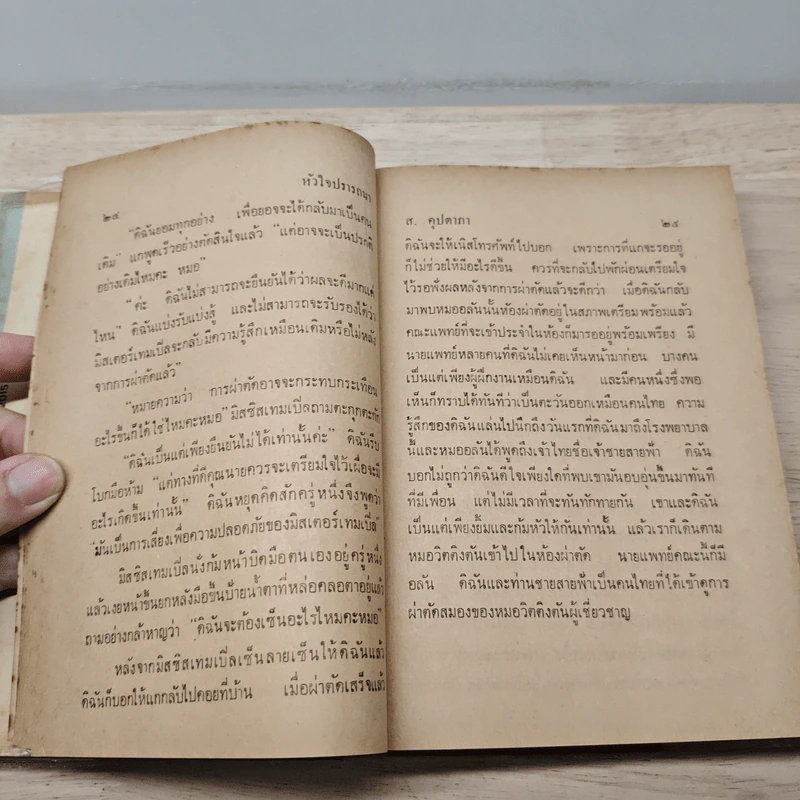 ๒๔ หัวใจปรารถนา
"ดิฉันยอมทุกอย่าง เพื่อยอจะได้กลับมาเป็นคน
เดิม" แกพูดเร็วอย่างตัดสินใจแล้ว "แต่อาจจะเป็นปรกติ
อย่างเดิมไหมคะ หมอ"
"ค่ะ ดิฉันไม่สามารถจะยืนยันได้ว่าผลจะดีมากแค่
ไหน" ดิฉันแบ่งรับแบ่งสู้ และไม่สามารถจะรับรองได้ว่า
มิสเตอร์เทมเปิ้ลจะกลับมีความรู้สึกเหมือนเดิมหรือไม่หลัง
จากการผ่าตัดแล้ว"
"หมายความว่า การผ่าตัดอาจจะกระทบกระเทือน
อะไรขึ้นก็ได้ใช่ไหมคะหมอ" มิสซิสเทมเปิลถามตะกุกตะกัก
"ดิฉันเป็นแต่เพียงยืนยันไม่ได้เท่านั้นค่ะ" ดิฉันรีบ
โบกมือห้าม "แต่ทางที่ดีคุณนายควรจะเตรียมใจไว้เผื่อจะมี
อะไรเกิดขึ้นเท่านั้น" ดิฉันหยุดคิดสักครู่หนึ่งจึงพูดว่า
"มันเป็นการเสี่ยงเพื่อความปลอดภัยของมิสเตอร์เทมเปิ้ล"
มิสซิสเทมเปิลนั่งก้มหน้าบิดมือตนเองอยู่ครู่หนึ่ง
แล้วเงยหน้าขึ้นยกหลังมือขึ้นป้ายน้ำตาที่หล่อคลอตาอยู่แล้ว
ถามอย่างกล้าหาญว่า "ดิฉันจะต้องเซ็นอะไรไหมคะหมอ"
หลังจากมิสซิสเทมเปิลเซ็นลายเซ็นให้ดิฉันแล้ว
ดิฉันก็บอกให้แกกลับไปคอยที่บ้าน เมื่อผ่าตัดเสร็จแล้ว
ส. คุปตาภา ๒๕
ดิฉันจะให้เนิสโทรศัพท์ไปบอก เพราะการที่แกจะรออยู่
ก็ไม่ช่วยให้มีอะไรดีขึ้น ควรที่จะกลับไปพักผ่อนเตรียมใจ
ไว้รอฟังผลหลังจากการผ่าตัดแล้วจะดีกว่า เมื่อดิฉันกลับ
มาพบหมออลันนั้นห้องผ่าตัดอยู่ในสภาพเตรียมพร้อมแล้ว
คณะแพทย์ที่จะเข้าประจำในห้องก็มารออยู่พร้อมเพรียง มี
นายแพทย์หลายคนที่ดิฉันไม่เคยเห็นหน้ามาก่อน บางคน
เป็นแต่เพียงผู้ฝึกงานเหมือนดิฉัน และมีคนหนึ่งซึ่งพอ
เห็นก็ทราบได้ทันทีว่าเป็นตะวันออกเหมือนคนไทย ความ
รู้สึกของดิฉันแล่นไปนึกถึงวันแรกที่ดิฉันมาถึงโรงพยาบาล
นี้และหมออลันได้พูดถึงเจ้าไทยชื่อเจ้าชายสายฟ้า ดิฉัน
บอกไม่ถูกว่าดิฉันดีใจเพียงใดที่พบเขามันอบอุ่นขึ้นมาทันที
ที่มีเพื่อน แต่ไม่มีเวลาที่จะทันทักทายกัน เขาและดิฉัน
เป็นแต่เพียงยิ้มและก้มหัวให้กันเท่านั้น แล้วเราก็เดินตาม
หมอวิตติงตันเข้าไปในห้องผ่าตัด นายแพทย์คณะนี้ก็มี
อลัน ดิฉันและท่านชายสายฟ้าเป็นคนไทยที่ได้เข้าดูการ
ผ่าตัดสมองของหมอวิตติงตันผู้เชี่ยวชาญ